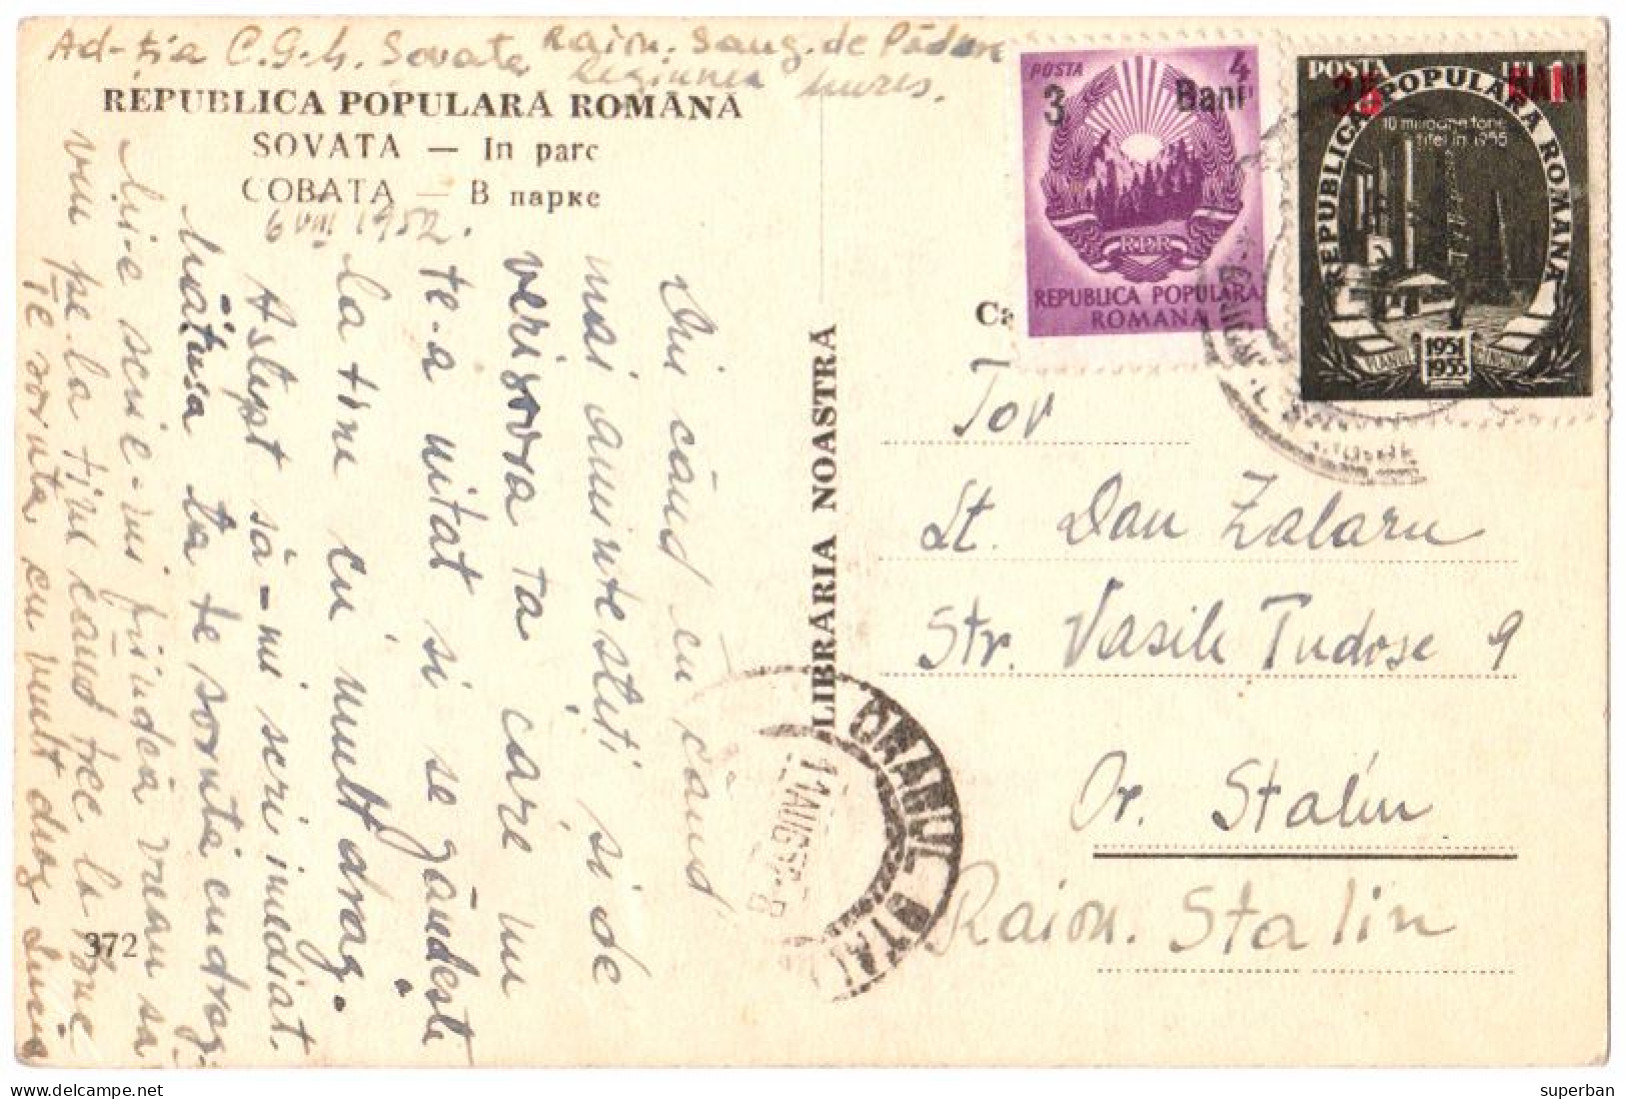 Ad-ția C.G.M. Sovata Raion. Sang. de Pădure
Regiunea Mureș.
REPUBLICA POPULARĂ ROMÂNĂ
SOVATA — In parc
СОВАТА — В парке
6 VIII 1952.
Din când în când
mai amintești și de
verișoara ta care nu
te-a uitat si se gândește
la tine cu mult drag.
Aștept să-mi scri imediat.
Mătușa ta te sorută cu drag.
scrie-mi fiindcă vreau să
viu pe la tine când trec la
Te soruta cu mult drag Lucia
372
LIBRARIA NOASTRA
POSTA 4
3 Bani
RPR
REPUBLICA POPULARA
ROMANA
POSTA LEI 1
35 BANI
REPUBLICA POPULARA ROMANA
10 milioane tone
titei in 1955
PLANUL CINCINAL
1951
1955
Ca
Tov
Lt. Dan Zalaru
Str. Vasile Tudose 9
Or. Stalin
Raion. Stalin
ORASUL STAL
11 AUG 52 - 8
superban